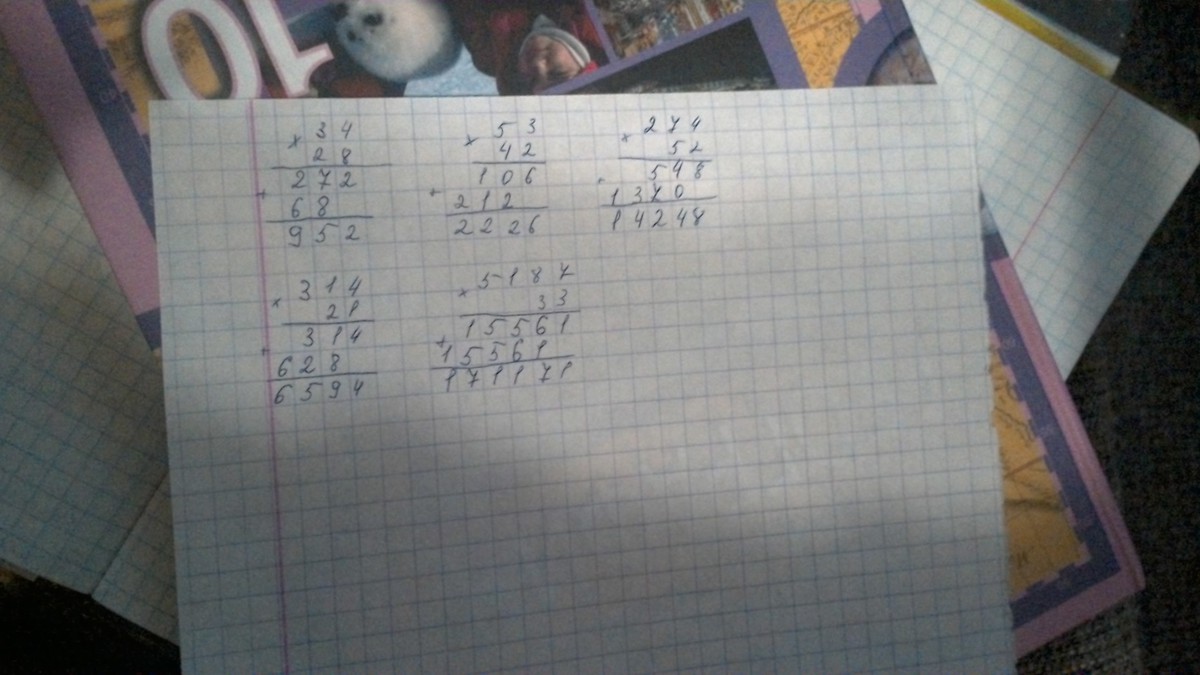 10
× 34
28
272
+
68
952
× 53
42
106
+
212
2226
× 274
52
548
1370
14248
× 314
21
314
+
628
6594
× 5187
33
15561
+
15561
171171